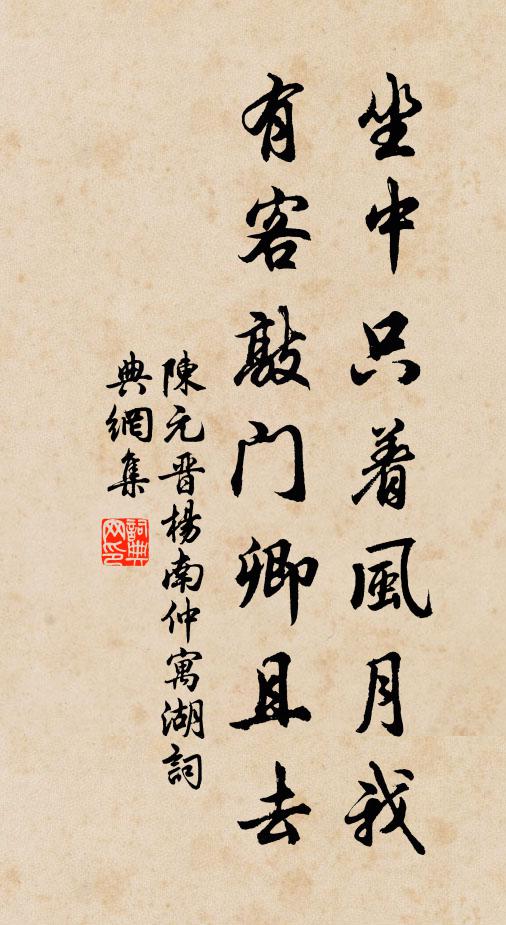 坐中只着風月我
有客敲门卿且去
陳元晋楊南仲寓湖詞
典網集
詞典網印